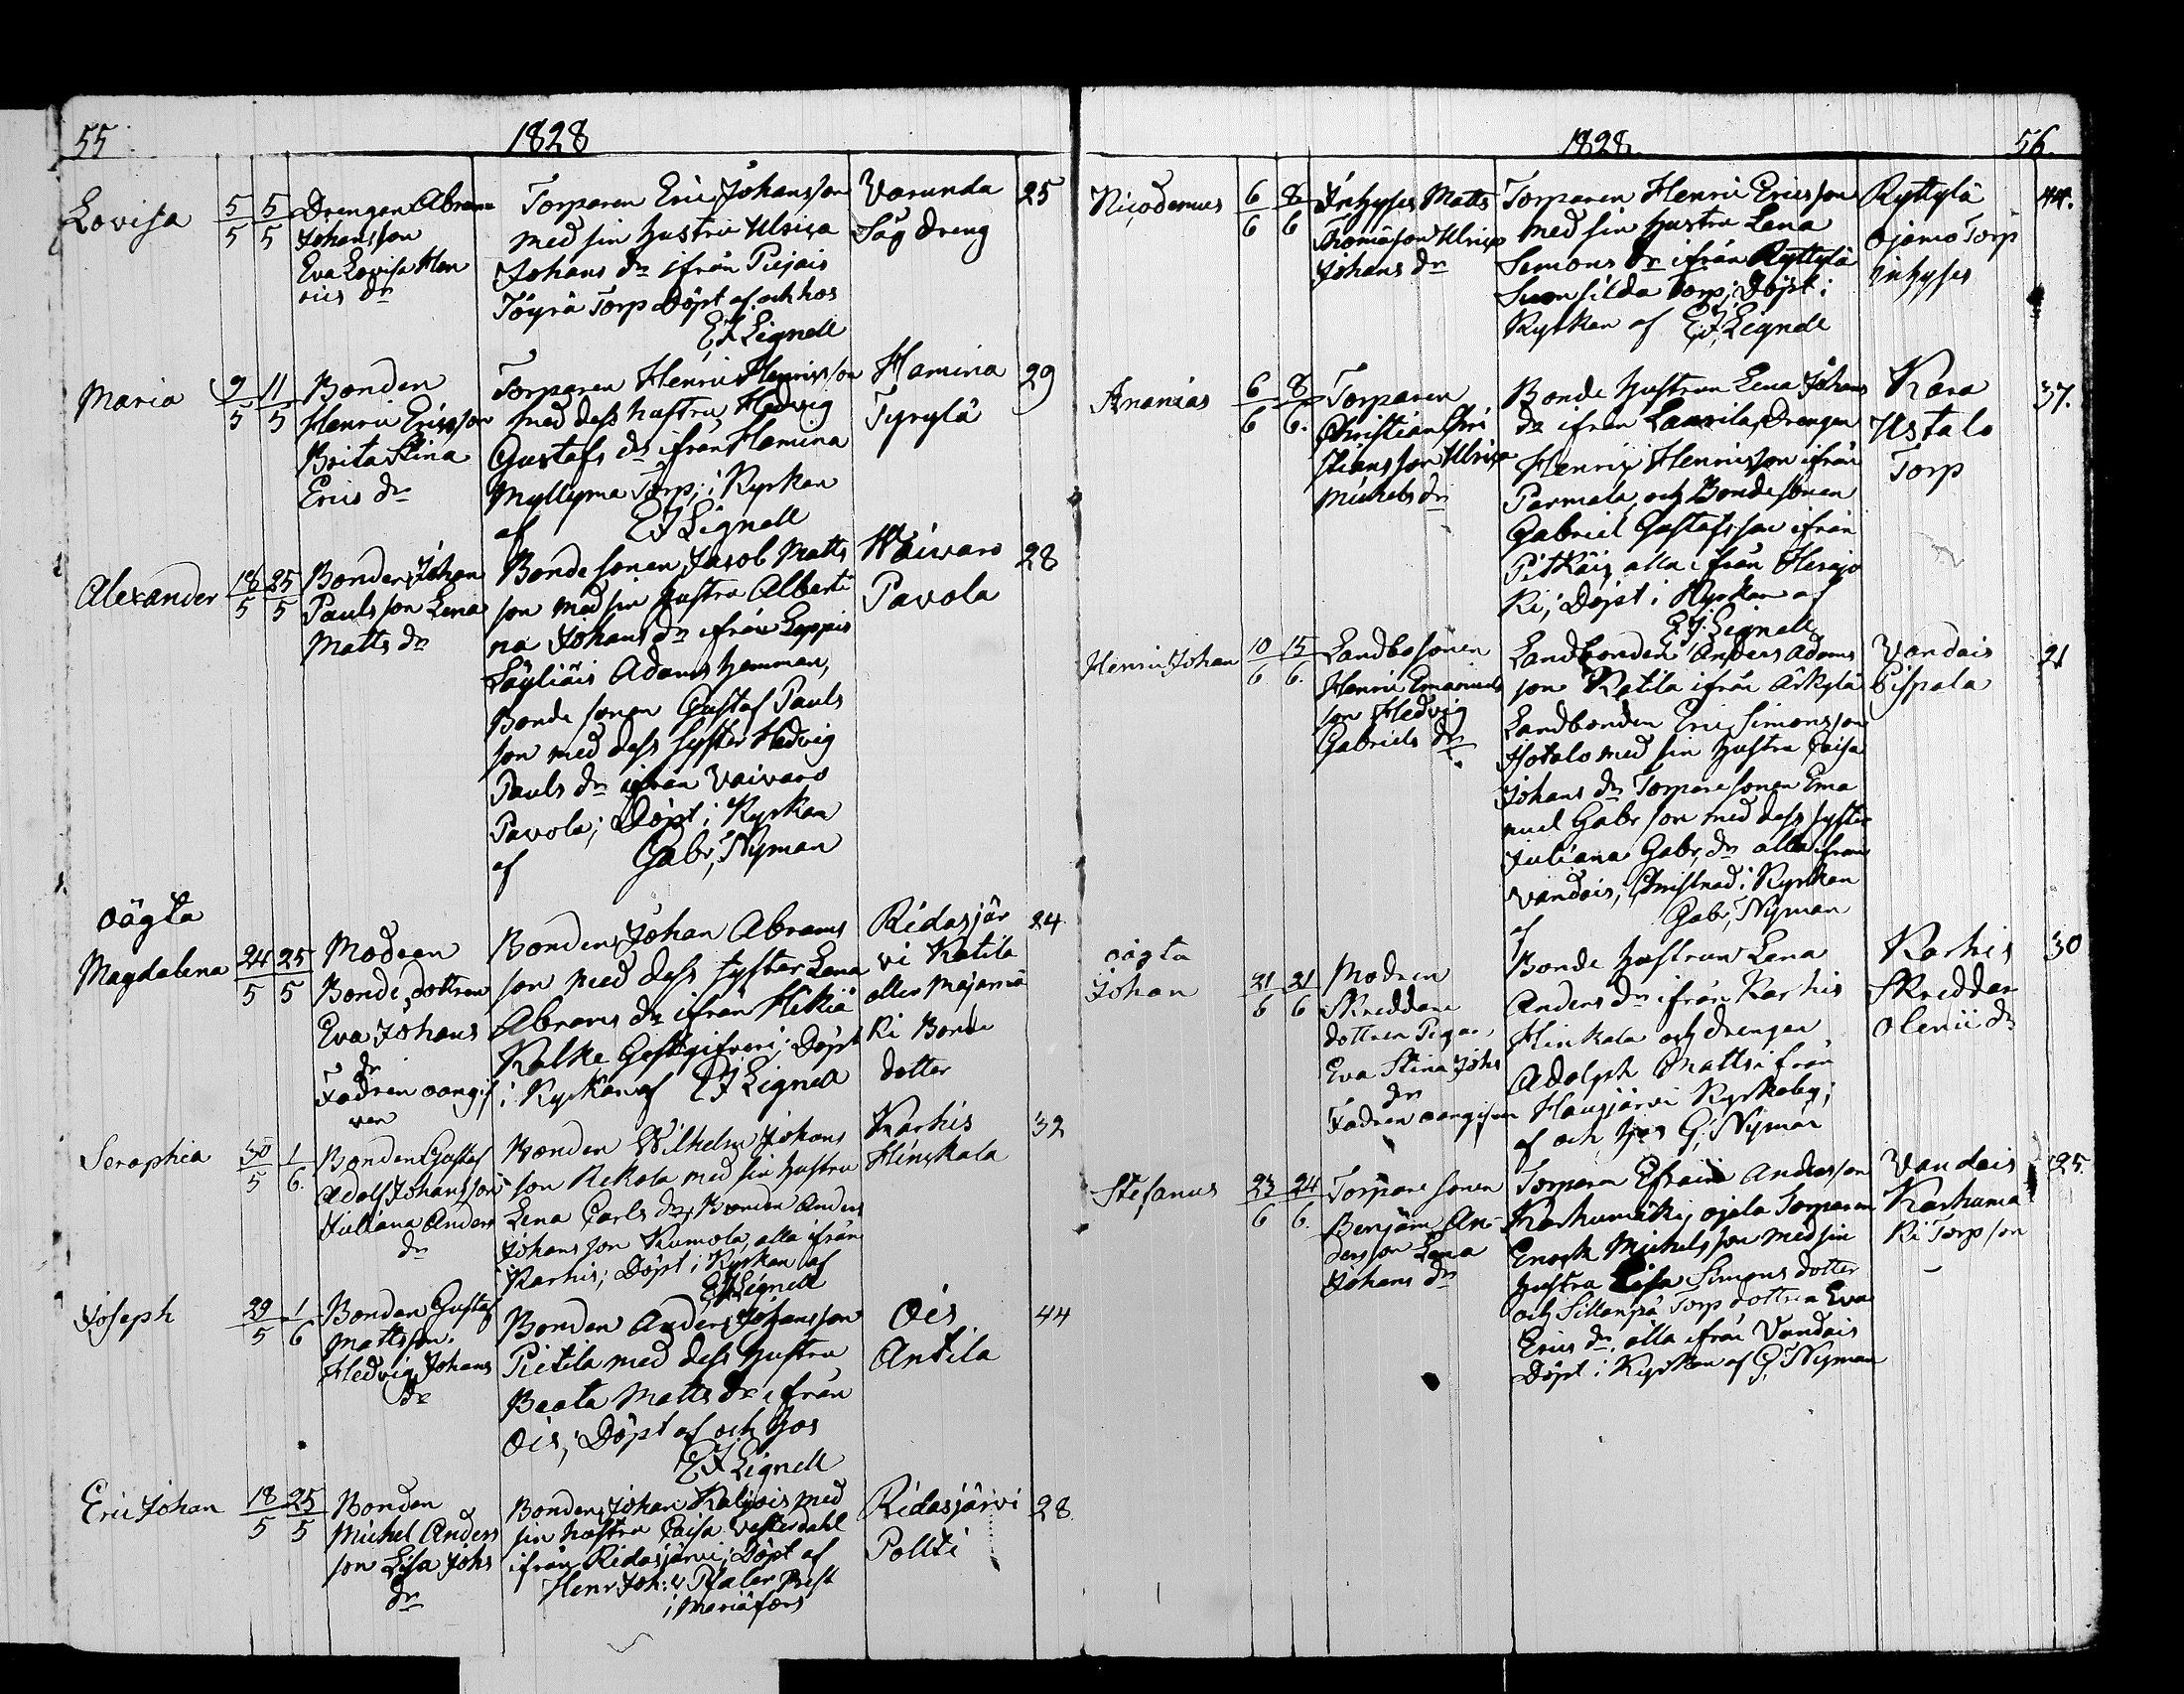 55
1828
Lovisa
5/5
5/5
Drengen Abram
Johansson
Eva Lovisa Hen
rics dr
Torparen Eric Johansson
med sin hustru Ulrica
Johans dr ifrån Piejais
Töyrä Torp Döpt af och hos
E J Lignell
Varunda
Såg dreng
25
Maria
9/5
11/5
Bonden
Henric Ericsson
Brita Stina
Erics dr
Torparen Henric Henricsson
med dess hustru, Hedvig
Gustafs dr ifrån Hamina
Myllyma Torp; i Kyrkan
af E J Lignell
Hamina
Tyrylä
29
Alexander
18/5
25/5
Bonden Johan
Paulsson Lena
Matts dr
Bonde sonen Jacob Matts
son med sin hustru Alberti
na Johans dr ifrån Loppis
Läyliäis Adams hemman,
Bonde sonen Gustaf Pauls
son med dess syster Hedvig
Pauls dr ifrån Vaivaro
Pavola; Döpt i Kyrkan
af Gabr, Nyman
Waivaro
Pavola
28
oägta
Magdalena
24/5
25/5
Modren
Bonde dottren
Eva Johans
dr
Fadren oangif
ven
Bonden Johan Abrams
son med dess syster Lena
Abrams dr ifrån Hikiä
Kalke Gestgifveri; Döpt
i Kyrkan af E J Lignell
Ridasjär
vi Katila
eller Majamä
ki Bonde
dotter
24
Seraphia
30/5
1/6.
Bonden Gustaf
Adolf Johansson
Juliana Anders
dr
Bonden Wilhelm Johans
son Rekola med sin hustru
Lena Carls dr, Bonden Anders
Johansson Kumola, alla ifrån
Karhis; Döpt i Kyrkan af
E J Lignell
Karhis
Hinkala
32
Joseph
29/5
1/6
Bonden Gustaf
Mattsson.
Hedvig Johans
dr
Bonden Anders Johansson
Pietila med dess hustru
Beata Matts dr ifrån
Ois; Döpt af och hos
E J Lignell
Ois
Antila
44
Eric Johan
18/5
25/5
Bonden
Michel Anders
son Lisa Johs
dr
Bonden Johan Kaljois med
sin hustru Caisa Vesterdahl
ifrån Ridasjärvi; Döpt af
Henr Joh: v Pfaler Prest
i Mariäfors
Ridasjärvi
Pollti
28
1828.
56.
Nicodemus
6/6
8/6
Inhyses Matts
Thomasson Ulrica
Johans dr
Torparen Henric Ericsson
med sin hustru Lena
Simons dr ifrån Ryttylä
Suonsilda Torp; Döpt i
Kyrkan af E J Lignell
Ryttylä
Ojamo Torp
inhyses
44.
Ananias
6/6
8/6.
Torparen
Christian Chri
stiansson Ulrica
Michels dr
Bonde hustrun Lena Johans
dr ifrån Laurila, Drengen
Henric Henricsson ifrån
Parmala, och Bonde sonen
Gabriel Gustafsson ifrån
Pitkäis alla ifrån Herajo
ki; Döpt i Kyrkan af
E J Lignell
Kara
Ustalo
Torp
37.
Henric Johan
10/6
15/6.
Landbosonen
Henric Emanuels
son Hedvig
Gabriels dr
Landbonden Anders Adams
son Katila ifrån Arkylä
Landbonden Eric Simonsson
Isotalo med sin hustru Caisa
Johans dr Torparesonen Ema
nuel Gabr son med dess syster
Juliana Gabr, dr alla ifrån
Vandais; Christnad i Kyrkan
af Gabr, Nyman
Vandais
Pispala
21
oägta
Johan
21/6
21/6
Modren
Skreddare
dottren Pigan,
Eva Stina Johs
dr
Fadren oangifven
Bonde hustrun Lena
Anders dr ifrån Karhis
Hinkala och Drengen
Adolph Matts ifrån
Hausjärvi Kyrkoby;
af och hos G; Nyman
Karhis
Skreddar
Olenii dr
30
Stefanus
23/6
24/6.
Torpare sonen
Benjam An-
dersson Lena
Johans dr
Torparen Efraim Andersson
Karhumäki, ojala Torparen
Enock Michelsson med sin
hustru Lisa Simons dotter
och Sillanpä Torp dottren Eva
Erics dr, alla ifrån Vandais
Döpt i Kyrkan af G; Nyman
Vandais
Karhuma
ki Torp son
25.